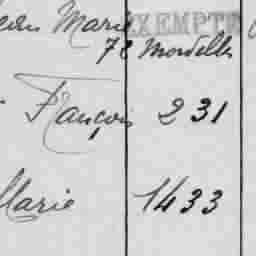 Marie EXEMPTE
78 Mordelles
François 231
Marie 1433